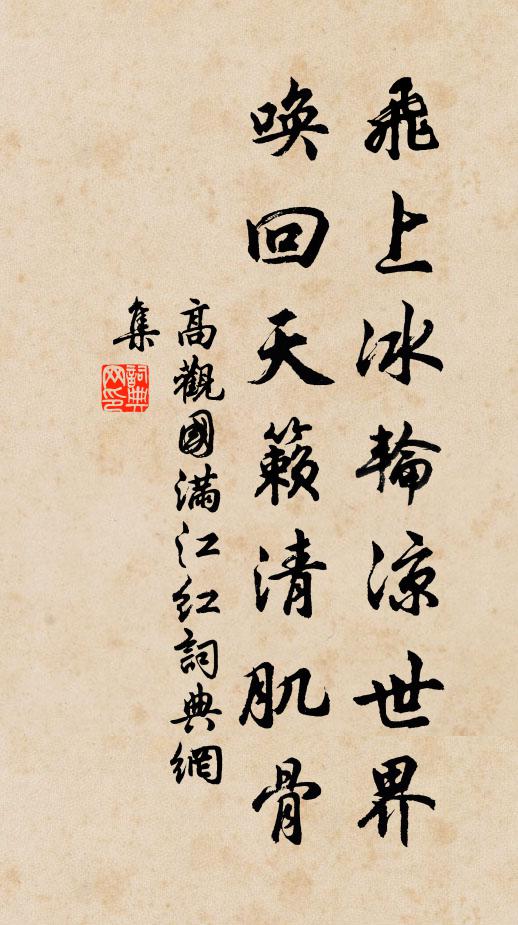 飛上冰輪涼世界
喚回天籟清肌骨
高觀國滿江紅詞典網
集
詞典
网印